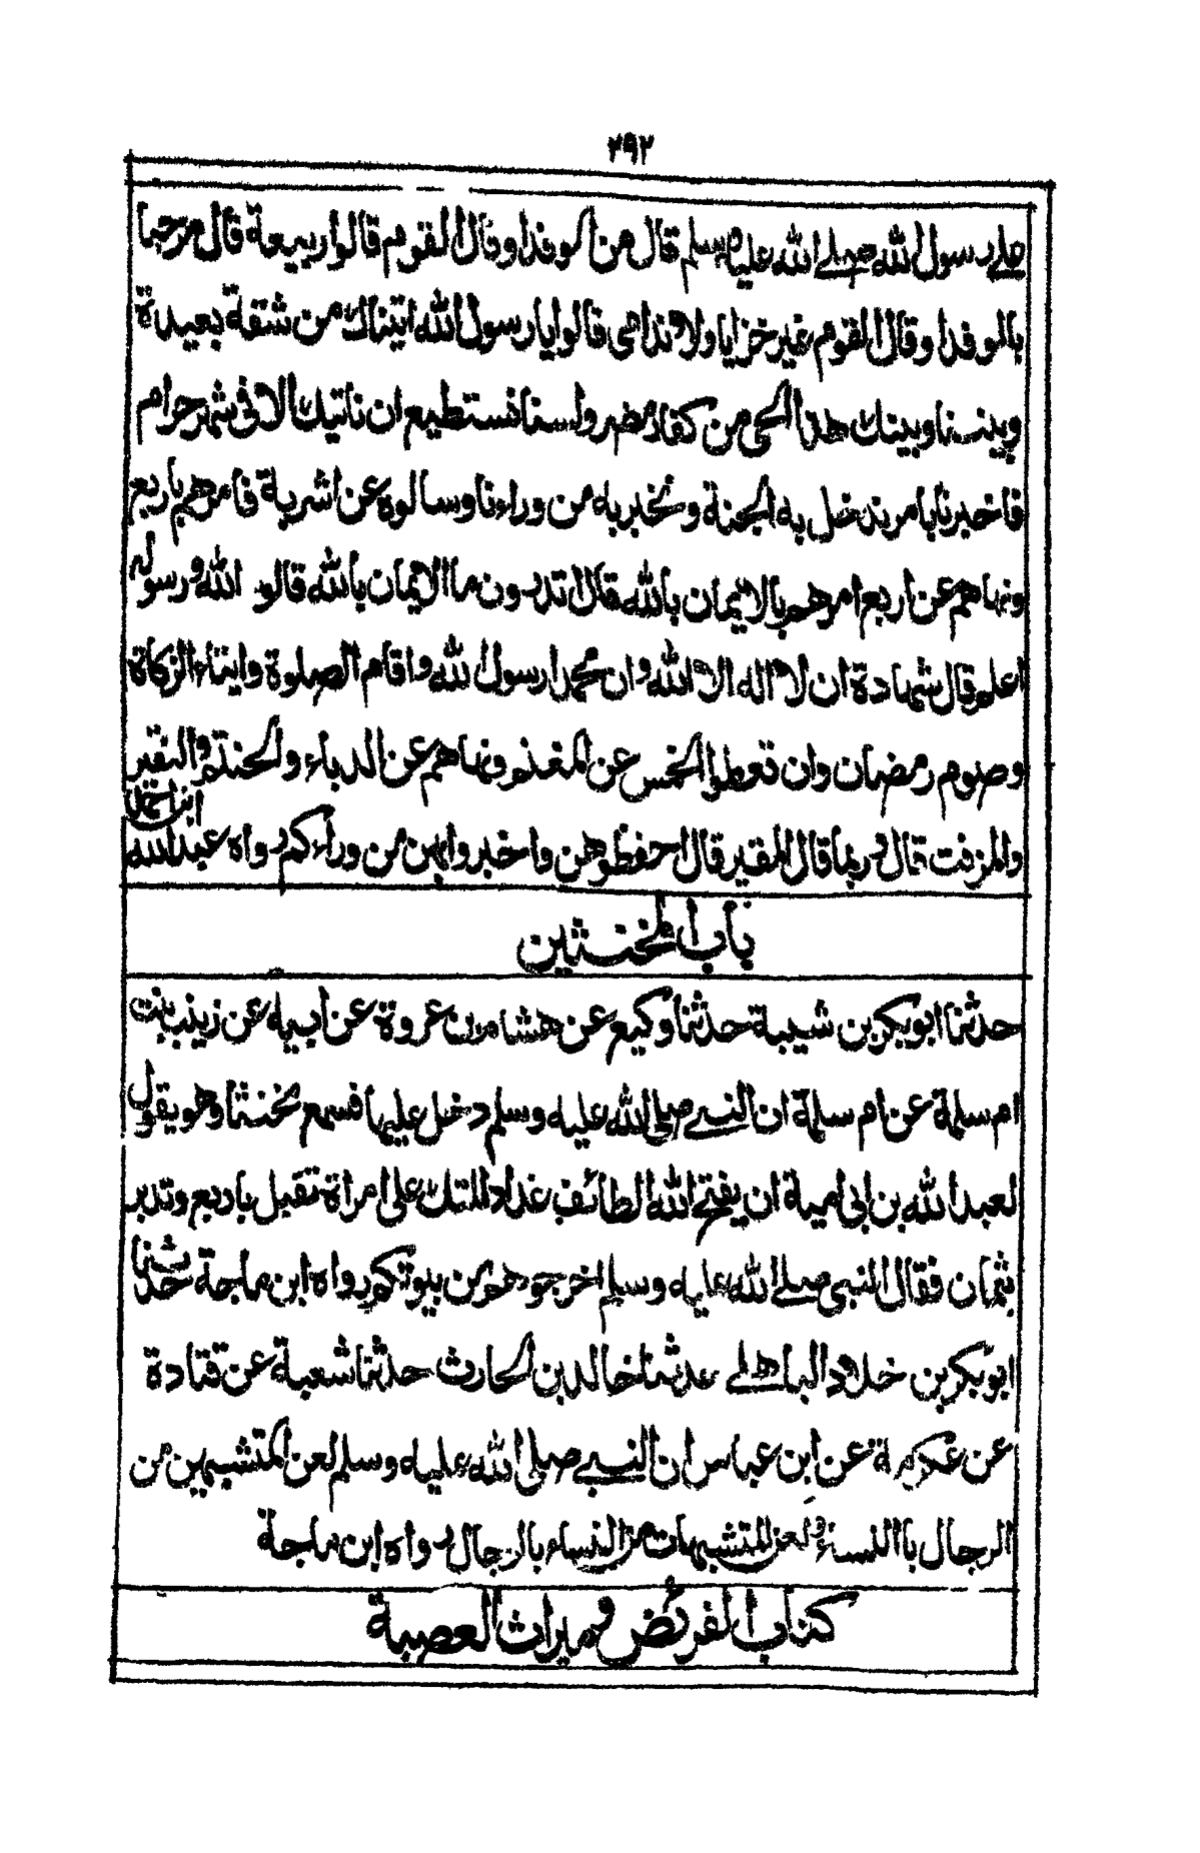 ٢٩٢
على رسول الله صلى الله عليه وسلم قال من الوفدا وقال القوم قالوا ربيعة قال مرحبا
بالوفدا وقال القوم غير خزايا ولا ندامى قالوا يا رسول الله اتيناك من شقة بعيدة
وبيننا وبينك هذا الحى من كفار مضر ولسنا نستطيع ان ناتيك الا فى شهر حرام
فاخبرنا بامر ندخل به الجنة ونخبر به من وراءنا وسالوه عن اشربة فامرهم باربع
ونهاهم عن اربع امرهم بالايمان بالله قال تدرون ما الايمان بالله قالو الله ورسوله
اعلم قال شهادة ان لا اله الا الله وان محمدا رسول الله واقام الصلوة وايتاء الزكاة
وصوم رمضان وان تعطوا الخمس عن المغنم ونهاهم عن الدباء والحنتم والنقير
والمزفت قال وربما قال المقير قال احفظوهن واخبروا بهن من وراءكم رواه عبد الله ابن احمد
باب المخنثين
حدثنا ابو بكر بن شيبة حدثنا وكيع عن هشام بن عروة عن ابيه عن زينب بنت
ام سلمة عن ام سلمة ان النبى صلى الله عليه وسلم دخل عليها فسمع مخنثا وهو يقول
لعبد الله بن ابى امية ان يفتح الله الطائف غدا دللتك على امراة تقبل باربع وتدبر
بثمان فقال النبى صلى الله عليه وسلم اخرجوهم من بيوتكم رواه ابن ماجة حدثنا
ابو بكر بن خلاد الباهلى حدثنا خالد بن الحارث حدثنا شعبة عن قتادة
عن عكرمة عن ابن عباس ان النبى صلى الله عليه وسلم لعن المتشبهين من
الرجال باالنساء ولعن المتشبهات من النساء بالرجال رواه ابن ماجة
كتاب الفرئض وميراث العصبة